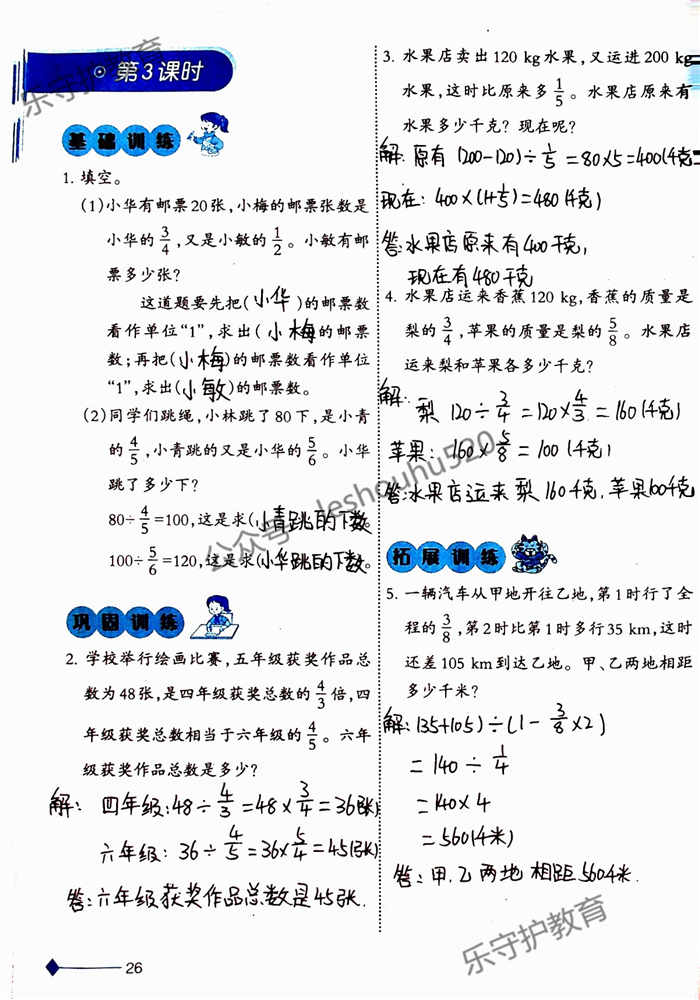 第3课时
基础训练
1. 填空。
(1)小华有邮票20张,小梅的邮票张数是
小华的3/4,又是小敏的1/2。小敏有邮
票多少张?
这道题要先把(小华)的邮票数
看作单位“1”,求出(小梅)的邮票
数;再把(小梅)的邮票数看作单位
“1”,求出(小敏)的邮票数。
(2)同学们跳绳,小林跳了80下,是小青
的4/5,小青跳的又是小华的5/6。小华
跳了多少下?
80÷4/5=100,这是求(小青跳的下数)
100÷5/6=120,这是求(小华跳的下数)
巩固训练
2. 学校举行绘画比赛,五年级获奖作品总
数为48张,是四年级获奖总数的4/3倍,四
年级获奖总数相当于六年级的4/5。六年
级获奖作品总数是多少?
解: 四年级:48÷4/3=48×3/4=36(张)
六年级: 36÷4/5=36×5/4=45(张)
答:六年级获奖作品总数是45张.
26
3. 水果店卖出120 kg水果,又运进200 kg
水果,这时比原来多1/5。水果店原来有
水果多少千克? 现在呢?
解:原有 (200-120)÷1/5=80×5=400(千克)
现在: 400×(1+1/5)=480(千克)
答:水果店原来有400千克,
现在有480千克
4. 水果店运来香蕉120 kg,香蕉的质量是
梨的3/4,苹果的质量是梨的5/8。水果店
运来梨和苹果各多少千克?
解:
梨 120÷3/4=120×4/3=160(千克)
苹果: 160×5/8=100(千克)
答:水果店运来梨160千克,苹果100千克
拓展训练
5. 一辆汽车从甲地开往乙地,第1时行了全
程的3/8,第2时比第1时多行35 km,这时
还差105 km到达乙地。甲、乙两地相距
多少千米?
解:(35+105)÷(1-3/8×2)
=140÷1/4
=140×4
=560(千米)
答:甲.乙两地相距560千米.
乐守护教育
公众号:leshouhu520
乐守护教育